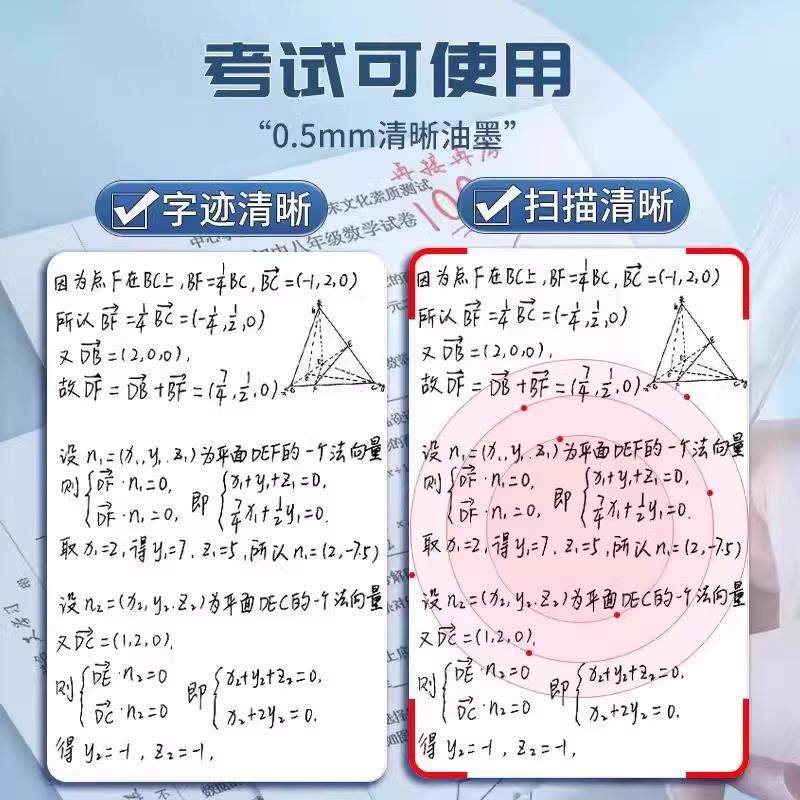 考试可使用
“0.5mm清晰油墨”
再接再
100
末文化素质测试
中八年级数学试卷
字迹清晰
扫描清晰
因为点F在BC上,BF=¼BC,BC→=(-1,2,0)
所以BF→=¼BC→=(-¼,½,0)
又DB→=(2,0,0),
故DF→=DB→+BF→=(7/4,½,0)
设n₁=(x₁,y₁,z₁)为平面DEF的一个法向量
则{DF→·n₁=0, 即{x₁+y₁+z₁=0,
DF→·n₁=0, 7/4x₁+½y₁=0.
取x₁=2,得y₁=7.z₁=5,所以n₁=(2,-7.5)
设n₂=(x₂,y₂.z₂)为平面DEC的一个法向量
又DC→=(1,2,0).
则{DE→·n₂=0 即{x₂+y₂+z₂=0,
DC→·n₂=0 x₂+2y₂=0.
得y₂=-1,z₂=-1,
因为点F在BC上,BF=¼BC,BC→=(-1,2,0)
所以BF→=¼BC→=(-¼,½,0)
又DB→=(2,0,0),
故DF→=DB→+BF→=(7/4,½,0)
设n₁=(x₁,y₁,z₁)为平面DEF的一个法向量
则{DF→·n₁=0, 即{x₁+y₁+z₁=0,
DF→·n₁=0, 7/4x₁+½y₁=0.
取x₁=2,得y₁=7.z₁=5,所以n₁=(2,-7.5)
设n₂=(x₂,y₂.z₂)为平面DEC的一个法向量
又DC→=(1,2,0).
则{DE→·n₂=0 即{x₂+y₂+z₂=0,
DC→·n₂=0 x₂+2y₂=0.
得y₂=-1,z₂=-1,